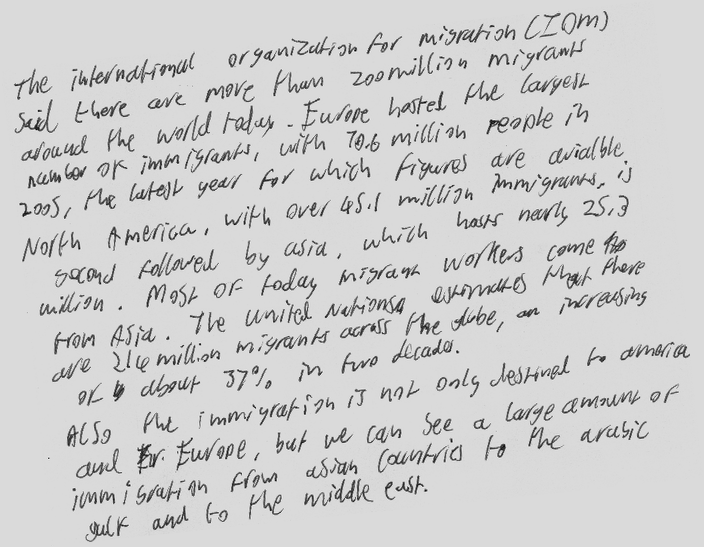 The international organization for migration (IOM)
Said there are more than 200 million migrants
around the world today. Europe hosted the largest
number of immigrants, with 70.6 million people in
2005, the latest year for which figures are avialble.
North America, with over 45.1 million immigrants, is
second followed by asia, which hosts nearly 25.3
million. Most of today migrant workers come
from Asia. The United Nations estimates that there
are 214 million migrants across the globe, an increasing
of about 37% in two decades.
Also the immigration is not only destined to america
and Europe, but we can see a large amount of
immigration from asian countries to the arabic
gulf and to the middle east.